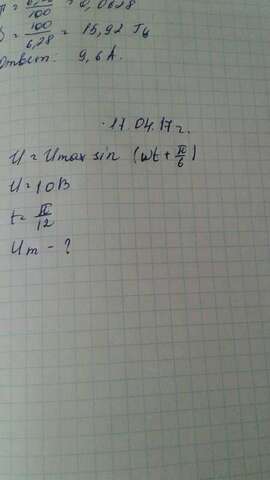 100 = 0,0628
= 100/6,28 = 15,92 Гц
Ответ: 9,6А.
11.04.17г.
U = Umax sin (ωt + π/6)
U = 10В
t = π/12
Um - ?